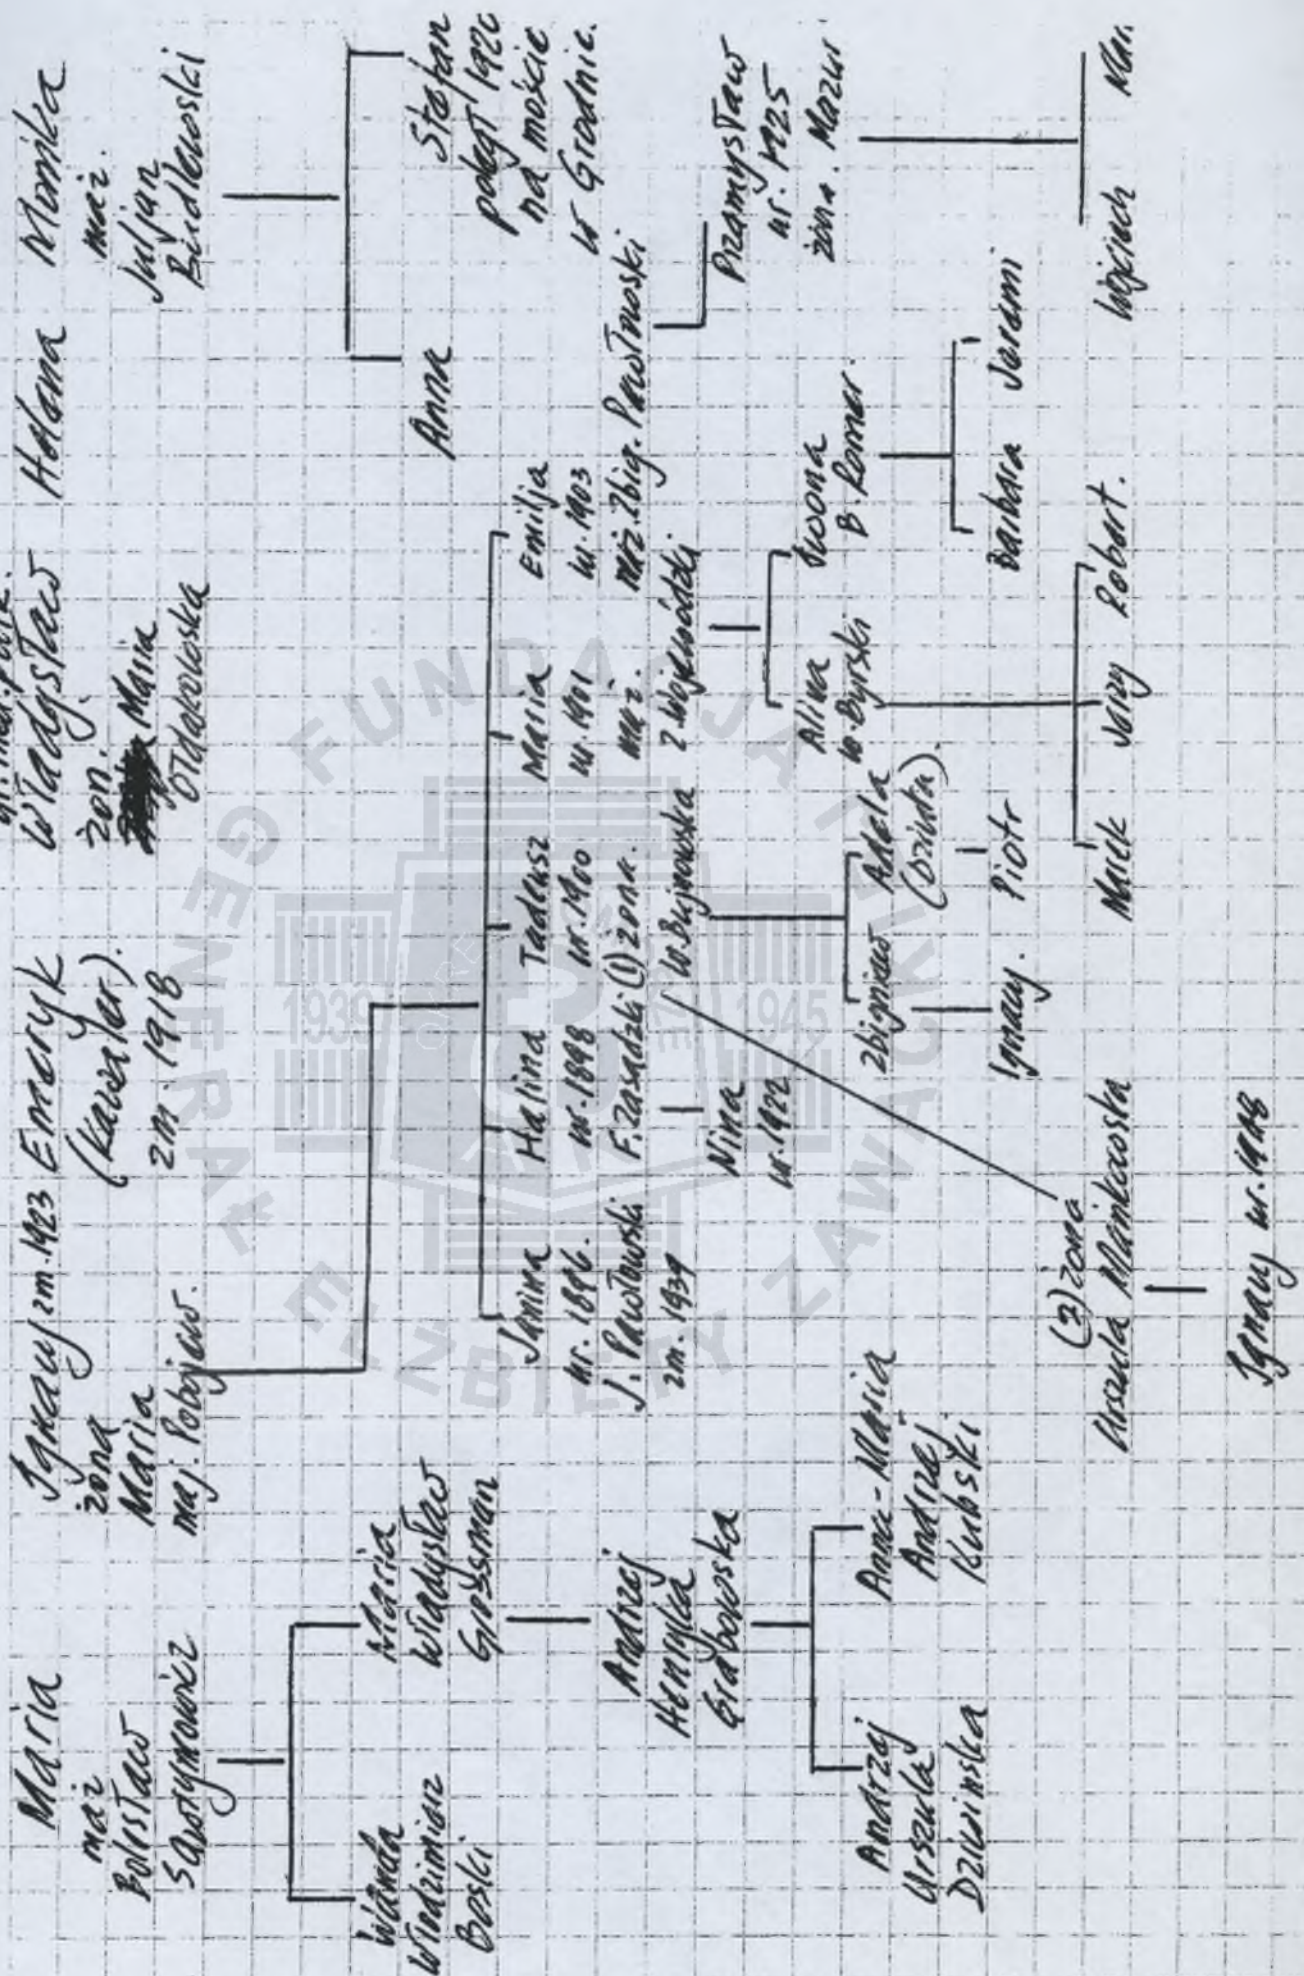 Maria
mąż
Bolesław
Ignacy zm. 1923
żona
Maria
maj. Pobojew.
Emeryk
(kawaler).
zm. 1918
Władysław
żon.
Maria
Helena
Monika
mąż.
Juljan
Wanda
Włodzimierz
Boski
Maria
Władysław
Grossman
Andrzej
Henryka
Grabowska
Andrzej
Urszula
Anna-Maria
Andrzej
Kubski
Janina
ur. 1896.
J. Pawłowski
zm. 1939
Halina
ur. 1898
F. Zasadzki
Nina
ur. 1922
Tadeusz
ur. 1900
(1) żona.
W. Bujnowska
Maria
ur. 1901
mąż.
Z. Wojewódzki
Emilja
ur. 1903
mąż. Zbig. Pawłowski
Anna
Stefan
poległ 1920
na moście
w Grodnie.
Przemysław
ur. 1925
żona. Mazur
Wojciech
Mar.
Zbigniew
Adela
(Dziuta).
Ignacy.
Piotr
Alina
W. Byrski
Iwona
B. Romer.
Marek
Jerzy
Robert.
Barbara
Jeremi
(2) żona
Urszula Mańkowska
Ignacy ur. 1948
FUNDACJA
GENERAŁ
ELŻBIETY ZAWACKIEJ
1939
1945